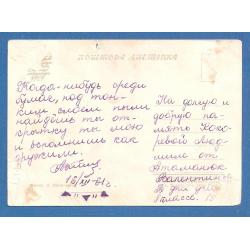 ПОШТОВА ЛИСТІВКА
Когда-нибудь среди
бумаг, под тон-
ким слоем пыли
найдёшь ты от-
крытку ты мою
и вспомнишь как
дружили.
16/XII-61г
На долгую и
добрую па-
мять Коко-
ревой Люд-
миле от
Атаманюк
Валентины
В дни уч.
класс. 15